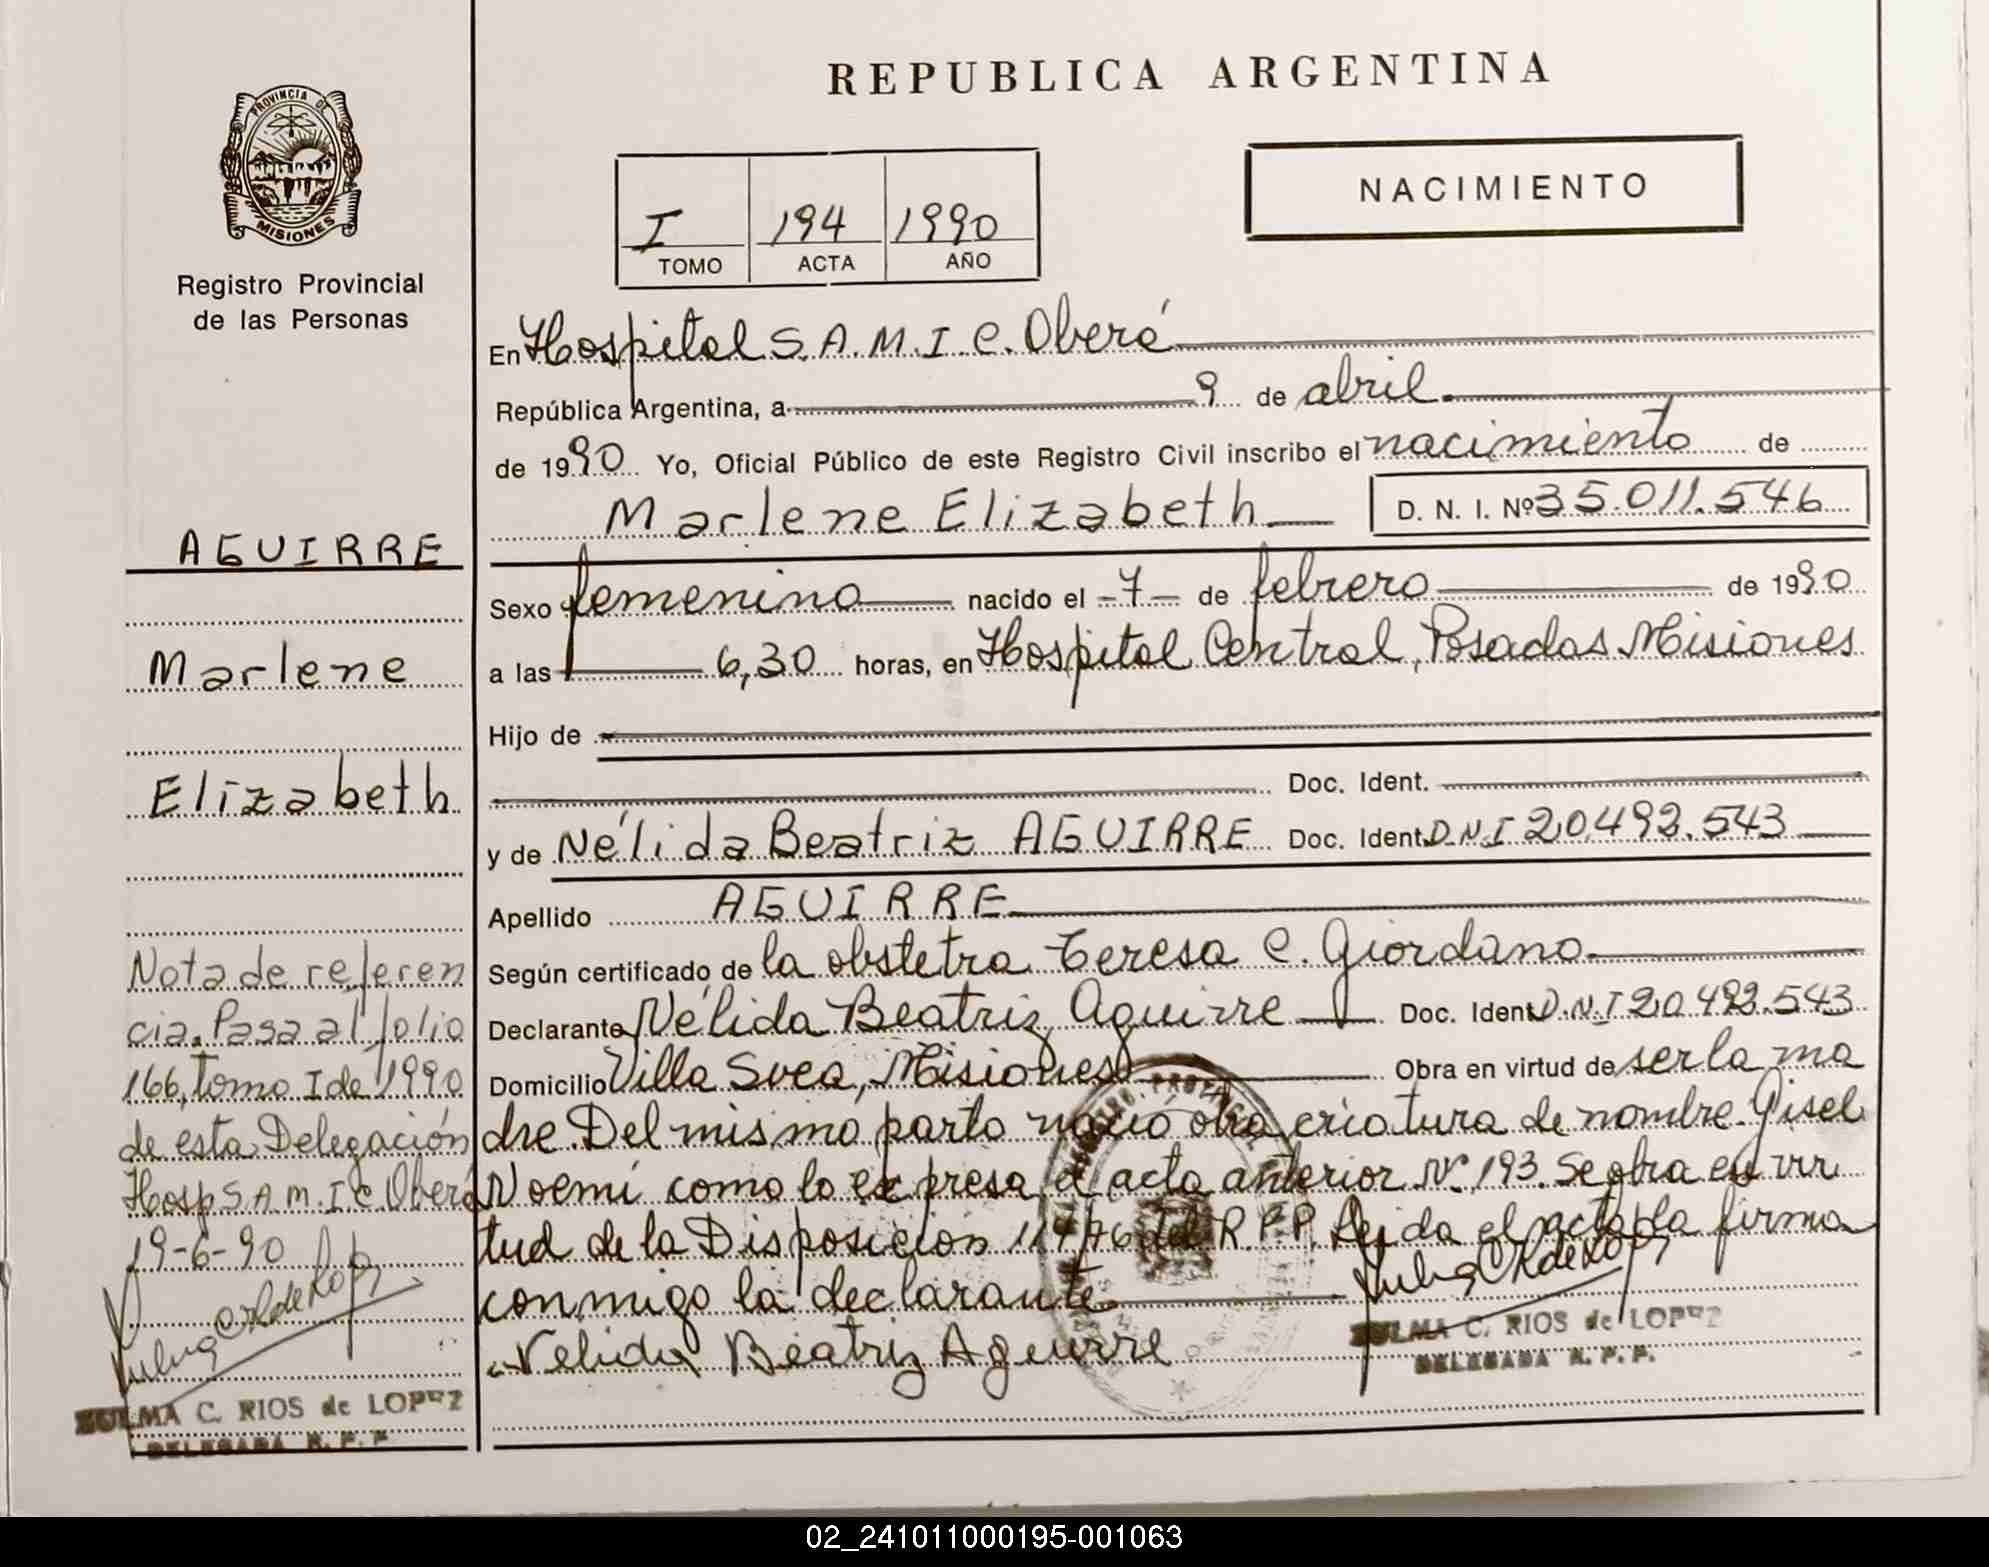 PROVINCIA DE
MISIONES
Registro Provincial
de las Personas
AGUIRRE
Marlene
Elizabeth
Nota de referen
cia. Pasa al folio
166, tomo I de 1990
de esta Delegación
Hosp S.A.M.I.C. Oberá
19-6-90
ZULMA C. RIOS de LOPEZ
DELEGADA R. P. P.
REPUBLICA ARGENTINA
I 194 1990
TOMO ACTA AÑO
NACIMIENTO
En Hospital S.A.M.I.C. Oberá
República Argentina, a 9 de abril
de 1990 Yo, Oficial Público de este Registro Civil inscribo el nacimiento de
Marlene Elizabeth D. N. I. Nº 35.011.546
Sexo femenino nacido el -7- de febrero de 1990
a las 6,30 horas, en Hospital Central, Posadas Misiones
Hijo de
Doc. Ident.
y de Nélida Beatriz AGUIRRE Doc. Ident. D.N.I 20.492.543
Apellido AGUIRRE
Según certificado de la obstetra Teresa C. Giordano
Declarante Nélida Beatriz Aguirre Doc. Ident. D.N.I 20.492.543
Domicilio Villa Svea, Misiones Obra en virtud de ser la ma
dre. Del mismo parto nació otra criatura de nombre Gisel
Noemí como lo expresa el acta anterior Nº 193. Se obra en vir
tud de la Disposición 114/76 del R.P.P. Leida el acta la firma
conmigo la declarante
Nelida Beatriz Aguirre
ZULMA C. RIOS de LOPEZ
DELEGADA R. P. P.
02_241011000195-001063